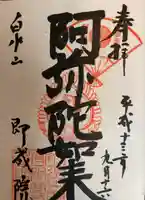 奉拝
平成十三年
九月十六
阿弥陀如来
即成院